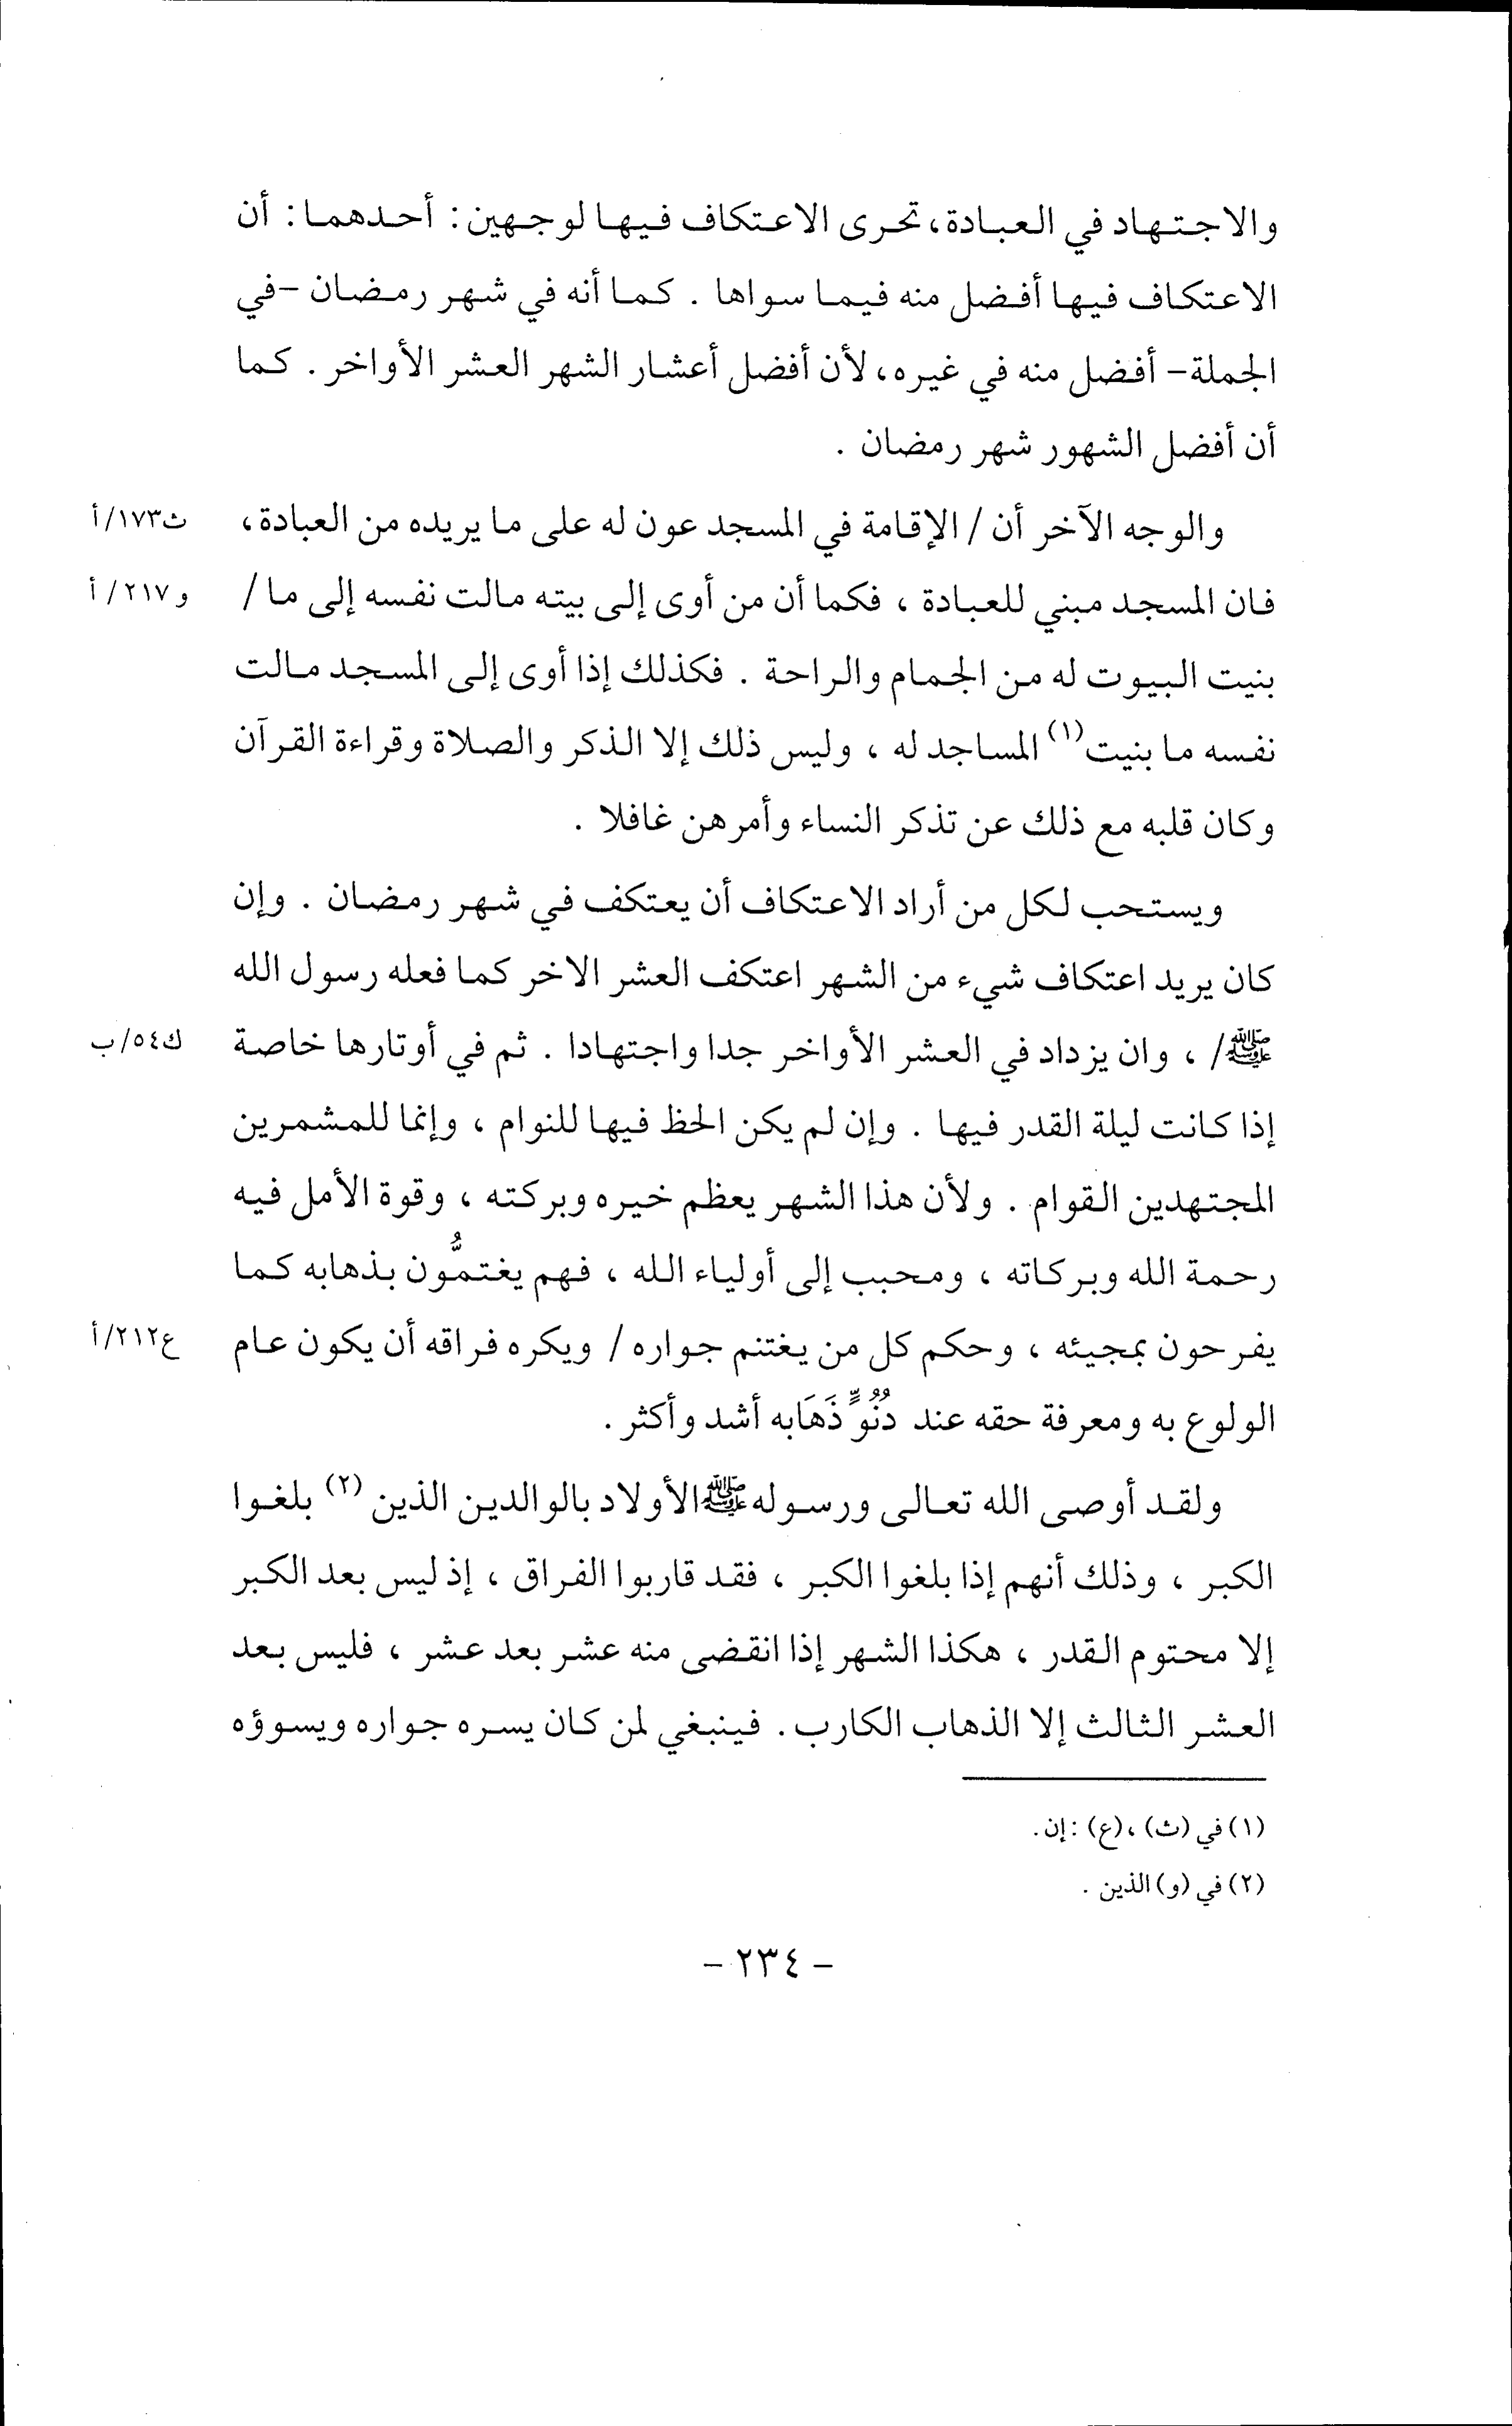 والاجتهاد في العبادة، تحرى الاعتكاف فيها لوجهين: أحدهما: أن
الاعتكاف فيها أفضل منه فيما سواها . كما أنه في شهر رمضان -في
الجملة- أفضل منه في غيره، لأن أفضل أعشار الشهر العشر الأواخر . كما
أن أفضل الشهور شهر رمضان .
والوجه الآخر أن / الإقامة في المسجد عون له على ما يريده من العبادة، ث١٧٣/أ
فان المسجد مبني للعبادة ، فكما أن من أوى إلى بيته مالت نفسه إلى ما / و٢١٧/ أ
بنيت البيوت له من الجمام والراحة . فكذلك إذا أوى إلى المسجد مالت
نفسه ما بنيت(١) المساجد له ، وليس ذلك إلا الذكر والصلاة وقراءة القرآن
وكان قلبه مع ذلك عن تذكر النساء وأمرهن غافلا .
ويستحب لكل من أراد الاعتكاف أن يعتكف في شهر رمضان . وإن
كان يريد اعتكاف شيء من الشهر اعتكف العشر الاخر كما فعله رسول الله
ﷺ/ ، وان يزداد في العشر الأواخر جدا واجتهادا . ثم في أوتارها خاصة ك٥٤/ب
إذا كانت ليلة القدر فيها . وإن لم يكن الحظ فيها للنوام ، وإنما للمشمرين
المجتهدين القوام . ولأن هذا الشهر يعظم خيره وبركته ، وقوة الأمل فيه
رحمة الله وبركاته ، ومحبب إلى أولياء الله ، فهم يغتمُّون بذهابه كما
يفرحون بمجيئه ، وحكم كل من يغتنم جواره / ويكره فراقه أن يكون عام ع٢١٢/أ
الولوع به ومعرفة حقه عند دُنُوٍّ ذَهَابه أشد وأكثر .
ولقد أوصى الله تعالى ورسوله ﷺ الأولاد بالوالدين الذين (٢) بلغوا
الكبر ، وذلك أنهم إذا بلغوا الكبر ، فقد قاربوا الفراق ، إذ ليس بعد الكبر
إلا محتوم القدر ، هكذا الشهر إذا انقضى منه عشر بعد عشر ، فليس بعد
العشر الثالث إلا الذهاب الكارب . فينبغي لمن كان يسره جواره ويسوؤه
(١) في (ث) ، (ع) : إن .
(٢) في (و) الذين .
- ٢٣٤ -